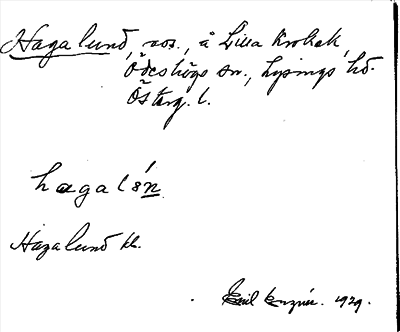 Hagalund, ros., å Lilla Krokek,
Ödeshögs sn., Lysings hd.
Österg. l.
hagalún
Hagalund kk.
Emil 1929.